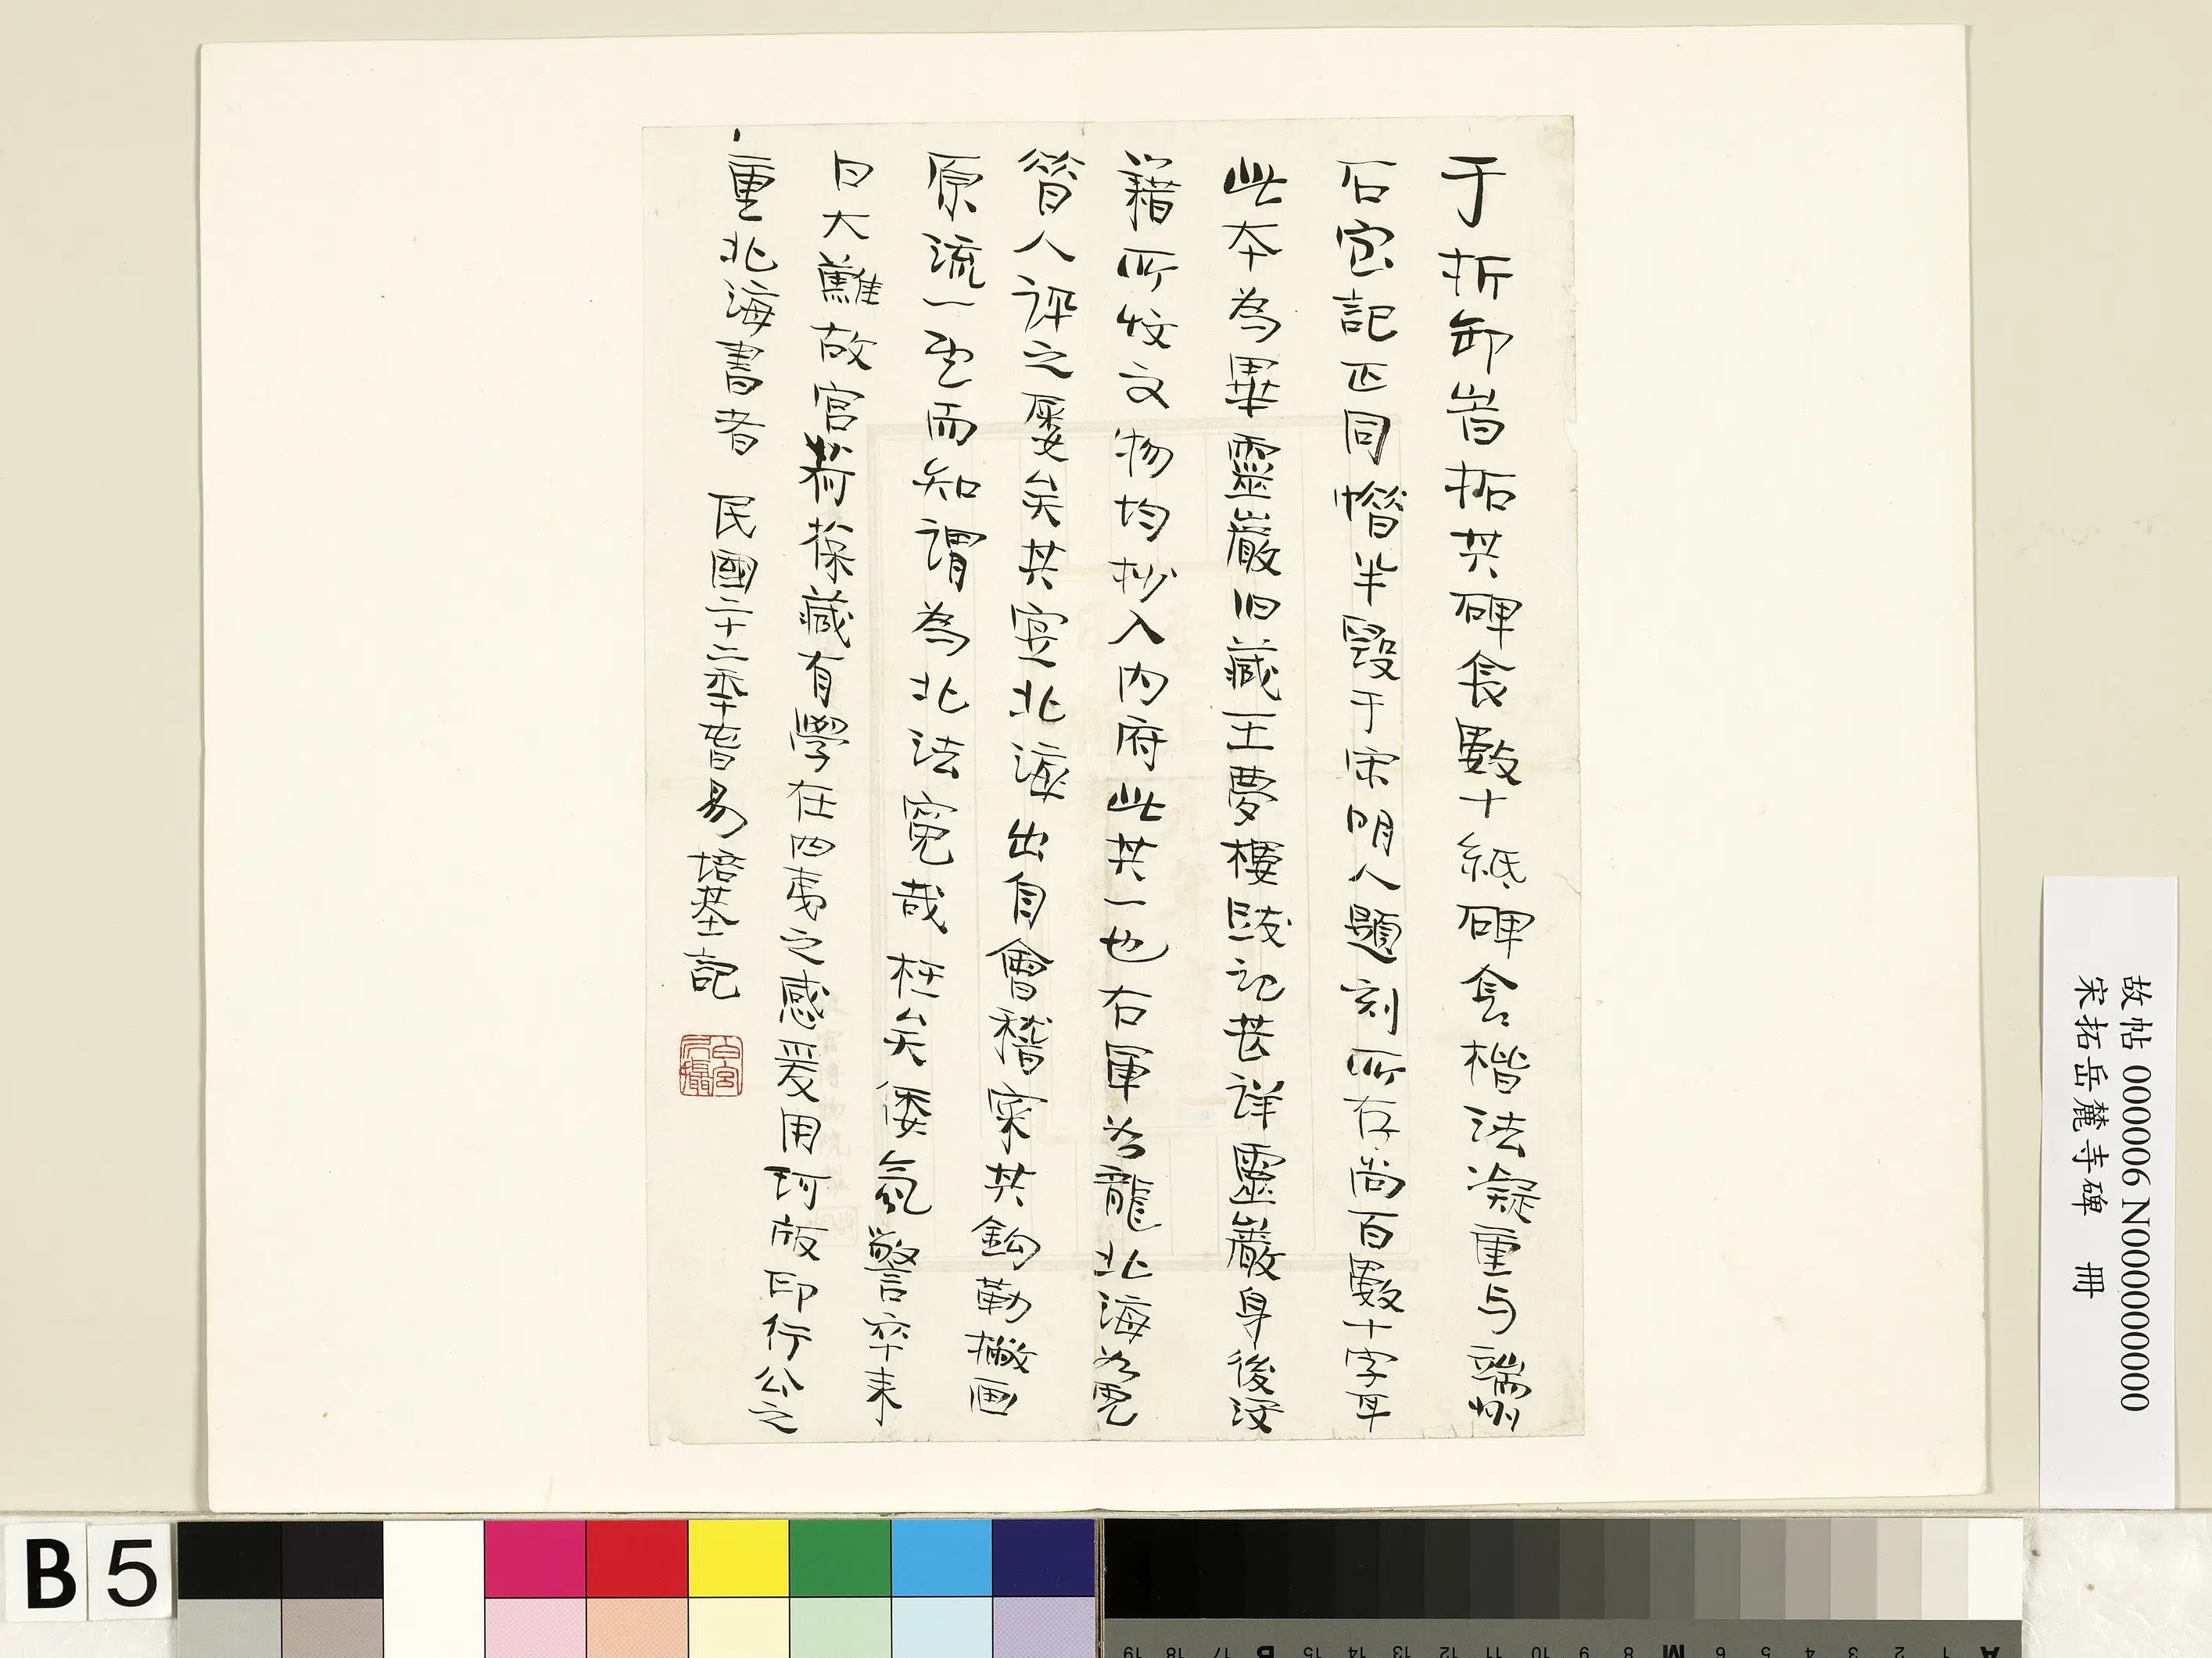 于拆卸時拓其碑侌數十紙碑侌楷法凝重与端州
石室記正同惜半毀于宋明人題刻所存尚百數十字耳
此本為畢靈巖旧藏王夢樓跋記甚詳靈巖身後没
籍所收文物均抄入内府此其一也右軍如龍北海如象
昝人評之屢矣其實北海出自會稽案其鈎勒撇画
原流一望而知謂為北法冤哉枉矣倭氛警卒未
日大難故宫荷葆藏有學在四夷之感爰用珂版印行公之
重北海書者 民國二十二年昔易培基記
故帖 000006 N000000000
宋拓岳麓寺碑 冊
B 5
A 1 2 3 4 5 6 M 8 9 10 11 12 13 14 15 B 17 18 19